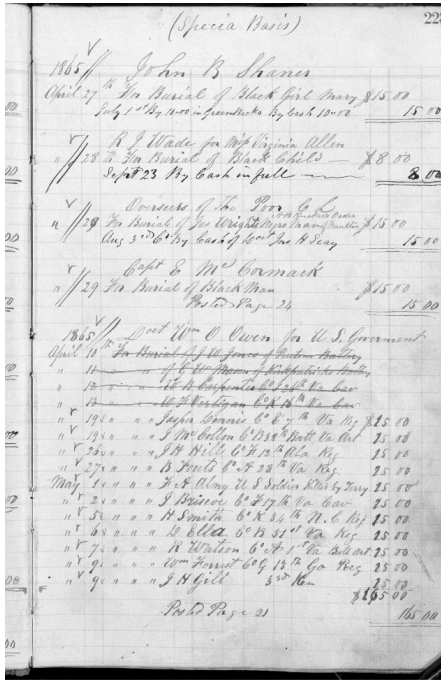 (Specia Basis)
223
1865 John R Shanes
April 27th For Burial of Black Girl Mary $15 00
July 1st By 10.00 in Green Backs By Cash 10.00 15 00
R J Wade for Miss Virginia Allen
" 28 " For Burial of Black Child $8 00
Sept 23 By Cash in full 8 00
Overseers of The Poor C L
" 28 For Burial of Jas Wright Negro $15 00
Aug 3rd By Cash of Jno H Seay 15 00
Capt E McCormack
" 29 For Burial of Black Man $15 00
Posted Page 24 15 00
1865 Doct Wm O Owen for U S Goverment
April 10th For Burial of J W Jones of Battery
" 11 " " of Mann of Kirkpatricks Batty
" 12 " " Carpenter Co I 26th Va Cav
" 13 " " Co K 15th Va Cav
" 19 " " " Jasper Co E 7th Va Reg $15 00
" 19 " " " J McCollon Co B 32d Batt Va Art 15 00
" 26 " " " J H Hill Co F 12th Ala Reg 15 00
" 27 " " " B Fouts Co A 28th Va Reg 15 00
May 1 " " " F A Almy U S Soldier Killed by Ferry 15 00
" 2 " " " J Briscoe Co F 17th Va Cav 15 00
" 5 " " " H Smith Co K 54th N.C Reg 15 00
" 6 " " " D Ella Co B 51st Va Reg 15 00
" 7 " " " R Watson Co A 1st Va 15 00
" 9 " " " Wm Forrest Co G 13th Ga Reg 15 00
" 9 " " " J H Gill 3rd 15 00
$165 00
Posted Page 21 165 00